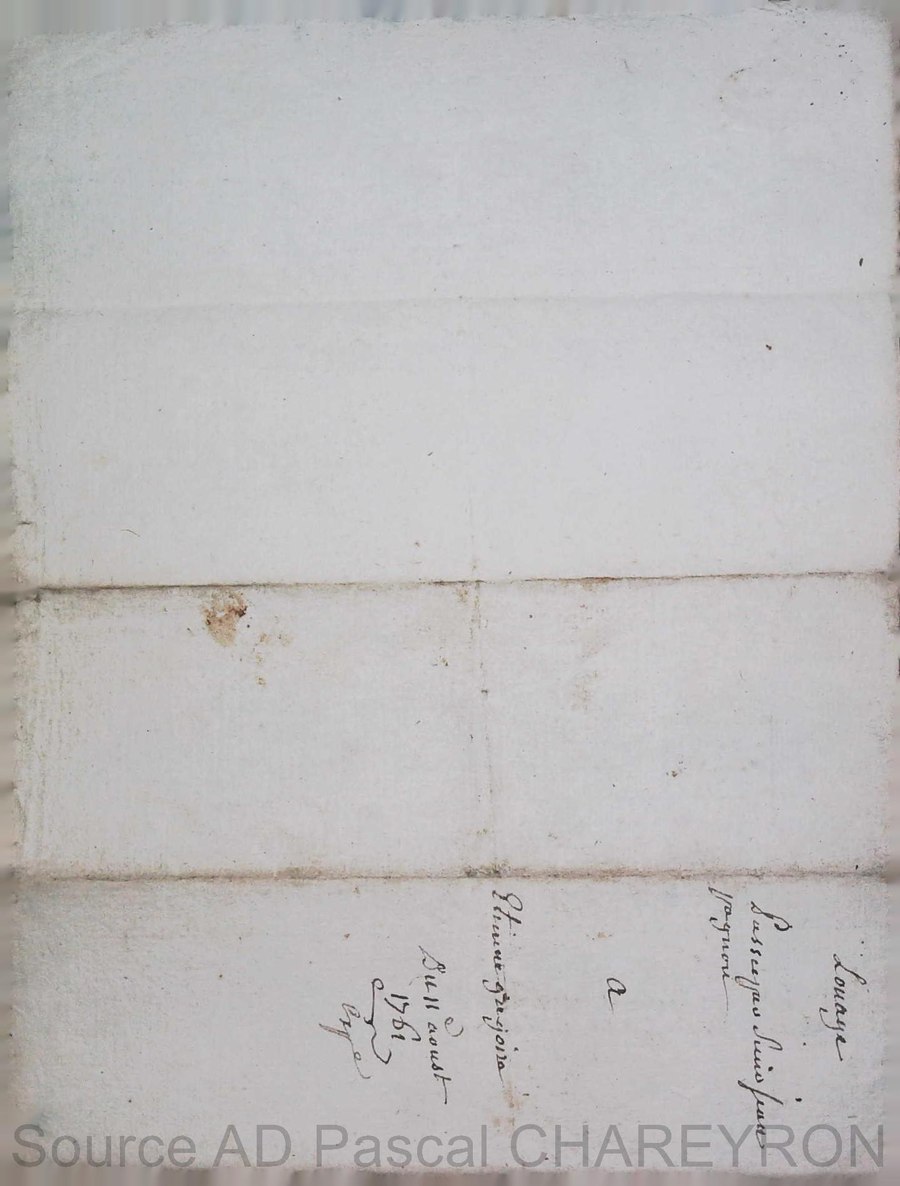 Louage
Passé par Sieur jean
pagnon
a
Etienne gregoire
Du 11e aoust
1761
Source AD Pascal CHAREYRON